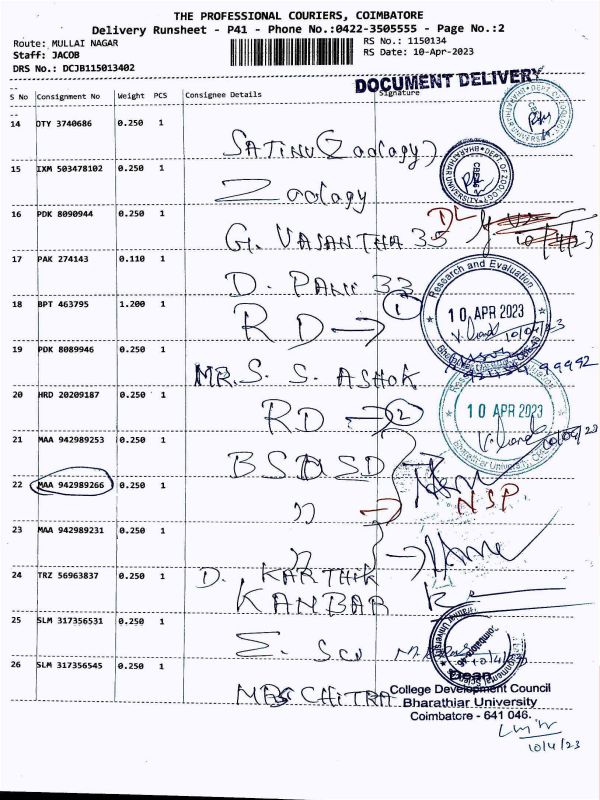 THE PROFESSIONAL COURIERS, COIMBATORE
Delivery Runsheet - P41 - Phone No.:0422-3505555 - Page No.:2
Route: MULLAI NAGAR RS No.: 1150134
Staff: JACOB RS Date: 10-Apr-2023
DRS No.: DCJB115013402
DOCUMENT DELIVERY
S No Consignment No Weight PCS Consignee Details Signature
14 DTY 3740686 0.250 1
SATINU (Zoology)
15 IXM 503478102 0.250 1
Zoology
16 PDK 8090944 0.250 1
G. VASANTHA 35 DL
10/4/23
17 PAK 274143 0.110 1
D. PANI 33
Research and Evaluation
18 BPT 463795 1.200 1
RD → 1 10 APR 2023
10/04/23
19 PDK 8089946 0.250 1
MR. S. S. ASHOK
20 HRD 20209187 0.250 1
RD → 2 10 APR 2023
10/04/23
21 MAA 942989253 0.250 1
BSMSD
22 MAA 942989266 0.250 1
" NSP.
23 MAA 942989231 0.250 1
"
24 TRZ 56963837 0.250 1 D. KARTHIK
KANBAR
25 SLM 317356531 0.250 1
E. Sci
10/4/23
26 SLM 317356545 0.250 1
MRS CHITRA
Dean
College Development Council
Bharathiar University
Coimbatore - 641 046.
10/4/23